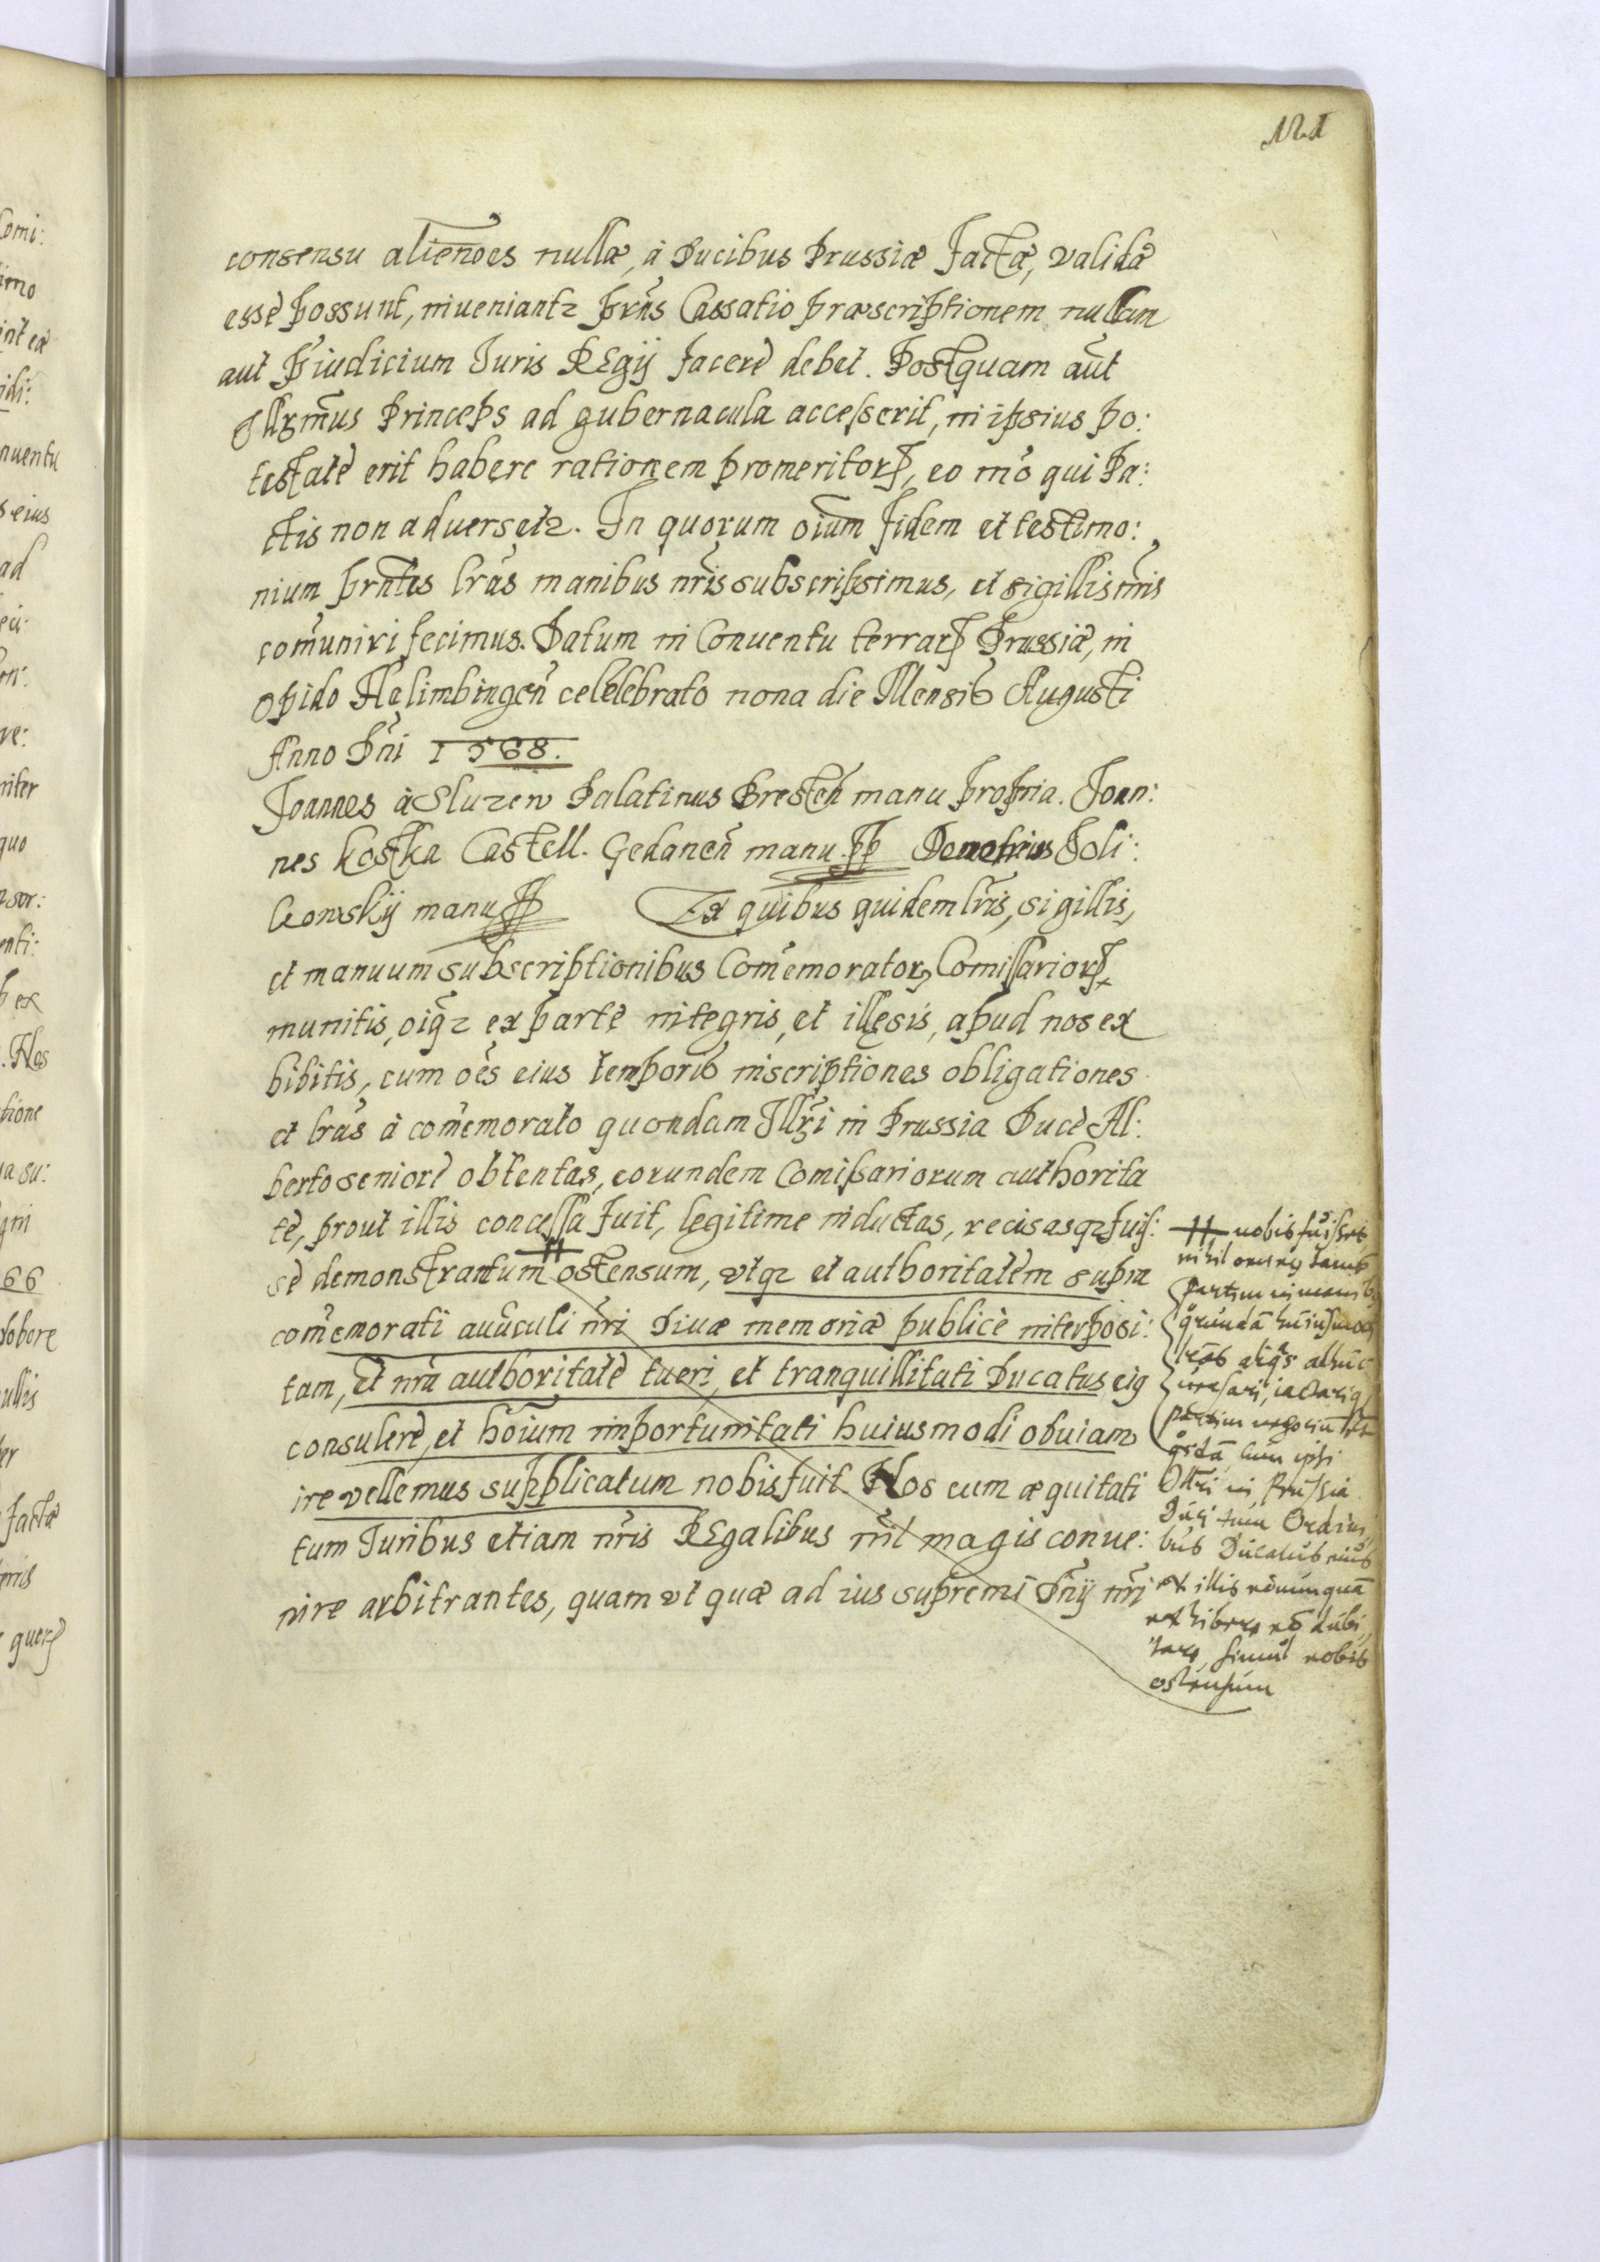 121
consensu alienões nullæ, à Ducibus Prussiæ factæ, validæ
esse possunt, inveniantz prñs Cassatio præscriptionem nullam
aut Piudicium Iuris REgij facere debet. Postquam aũt
Illr̃mus Princeps ad gubernacula accesserit, in ipsius po:
testate erit habere rationem promeritorꝝ, eo mõ qui Pa:
ctis non adversetz. In quorum oĩum fidem et testimo:
nium prñtes lrãs manibus nr̃is subscripsimus, et sigillis nr̃is
com̃uniri fecimus. Datum in Conventu terrarꝝ Prussiæ, in
opido Helimbingeñ celelebrato nona die Mensis Augusti
Anno Dñi 1568.
Joannes à Sluzew Palatinus Bresteñ manu propria. Joan:
nes Kostka Castell. Gedaneñ manu pp Demetrius Soli:
kowskij manu pp Ex quibus quidem lr̃is, sigillis,
et manuum subscriptionibus Com̃emoratorꝝ Comissariorꝝ
munitis, oĩqz ex parte integris, et illęsis, apud nos ex
hibitis, cum oẽs eius temporis inscriptiones obligationes
et lrãs à com̃emorato quondam Illr̃i in Prussia Duce Al:
berto seniore obtentas, eorundem Comissariorum authorita
te, prout illis concessa fuit, legitime inductas, recisasqz fuis:
se demonstrantum ostensum, utqz et authoritatem supra
com̃emorati avũculi nr̃i Divæ memoriæ publice interposi:
tam, et nr̃a authoritate tueri, et tranquillitati Ducatus eiꝯ
consulere, et hoĩum importunitati huiusmodi obviam
ire vellemus supplicatum nobis fuit. Nos cum æquitati
tum Iuribus etiam nr̃is REgalibus nil magis conve:
nire arbitrantes, quam ut quæ ad ius supremi Dñij nr̃i
# nobis fuisset
partim in manibꝯ
partim
Illr̃i in Prussia
Duci tum Ordini
bus Ducatus eius
ex illis nõnunquã
exhibere nõ dubi
tare, simul nobis
ostensum